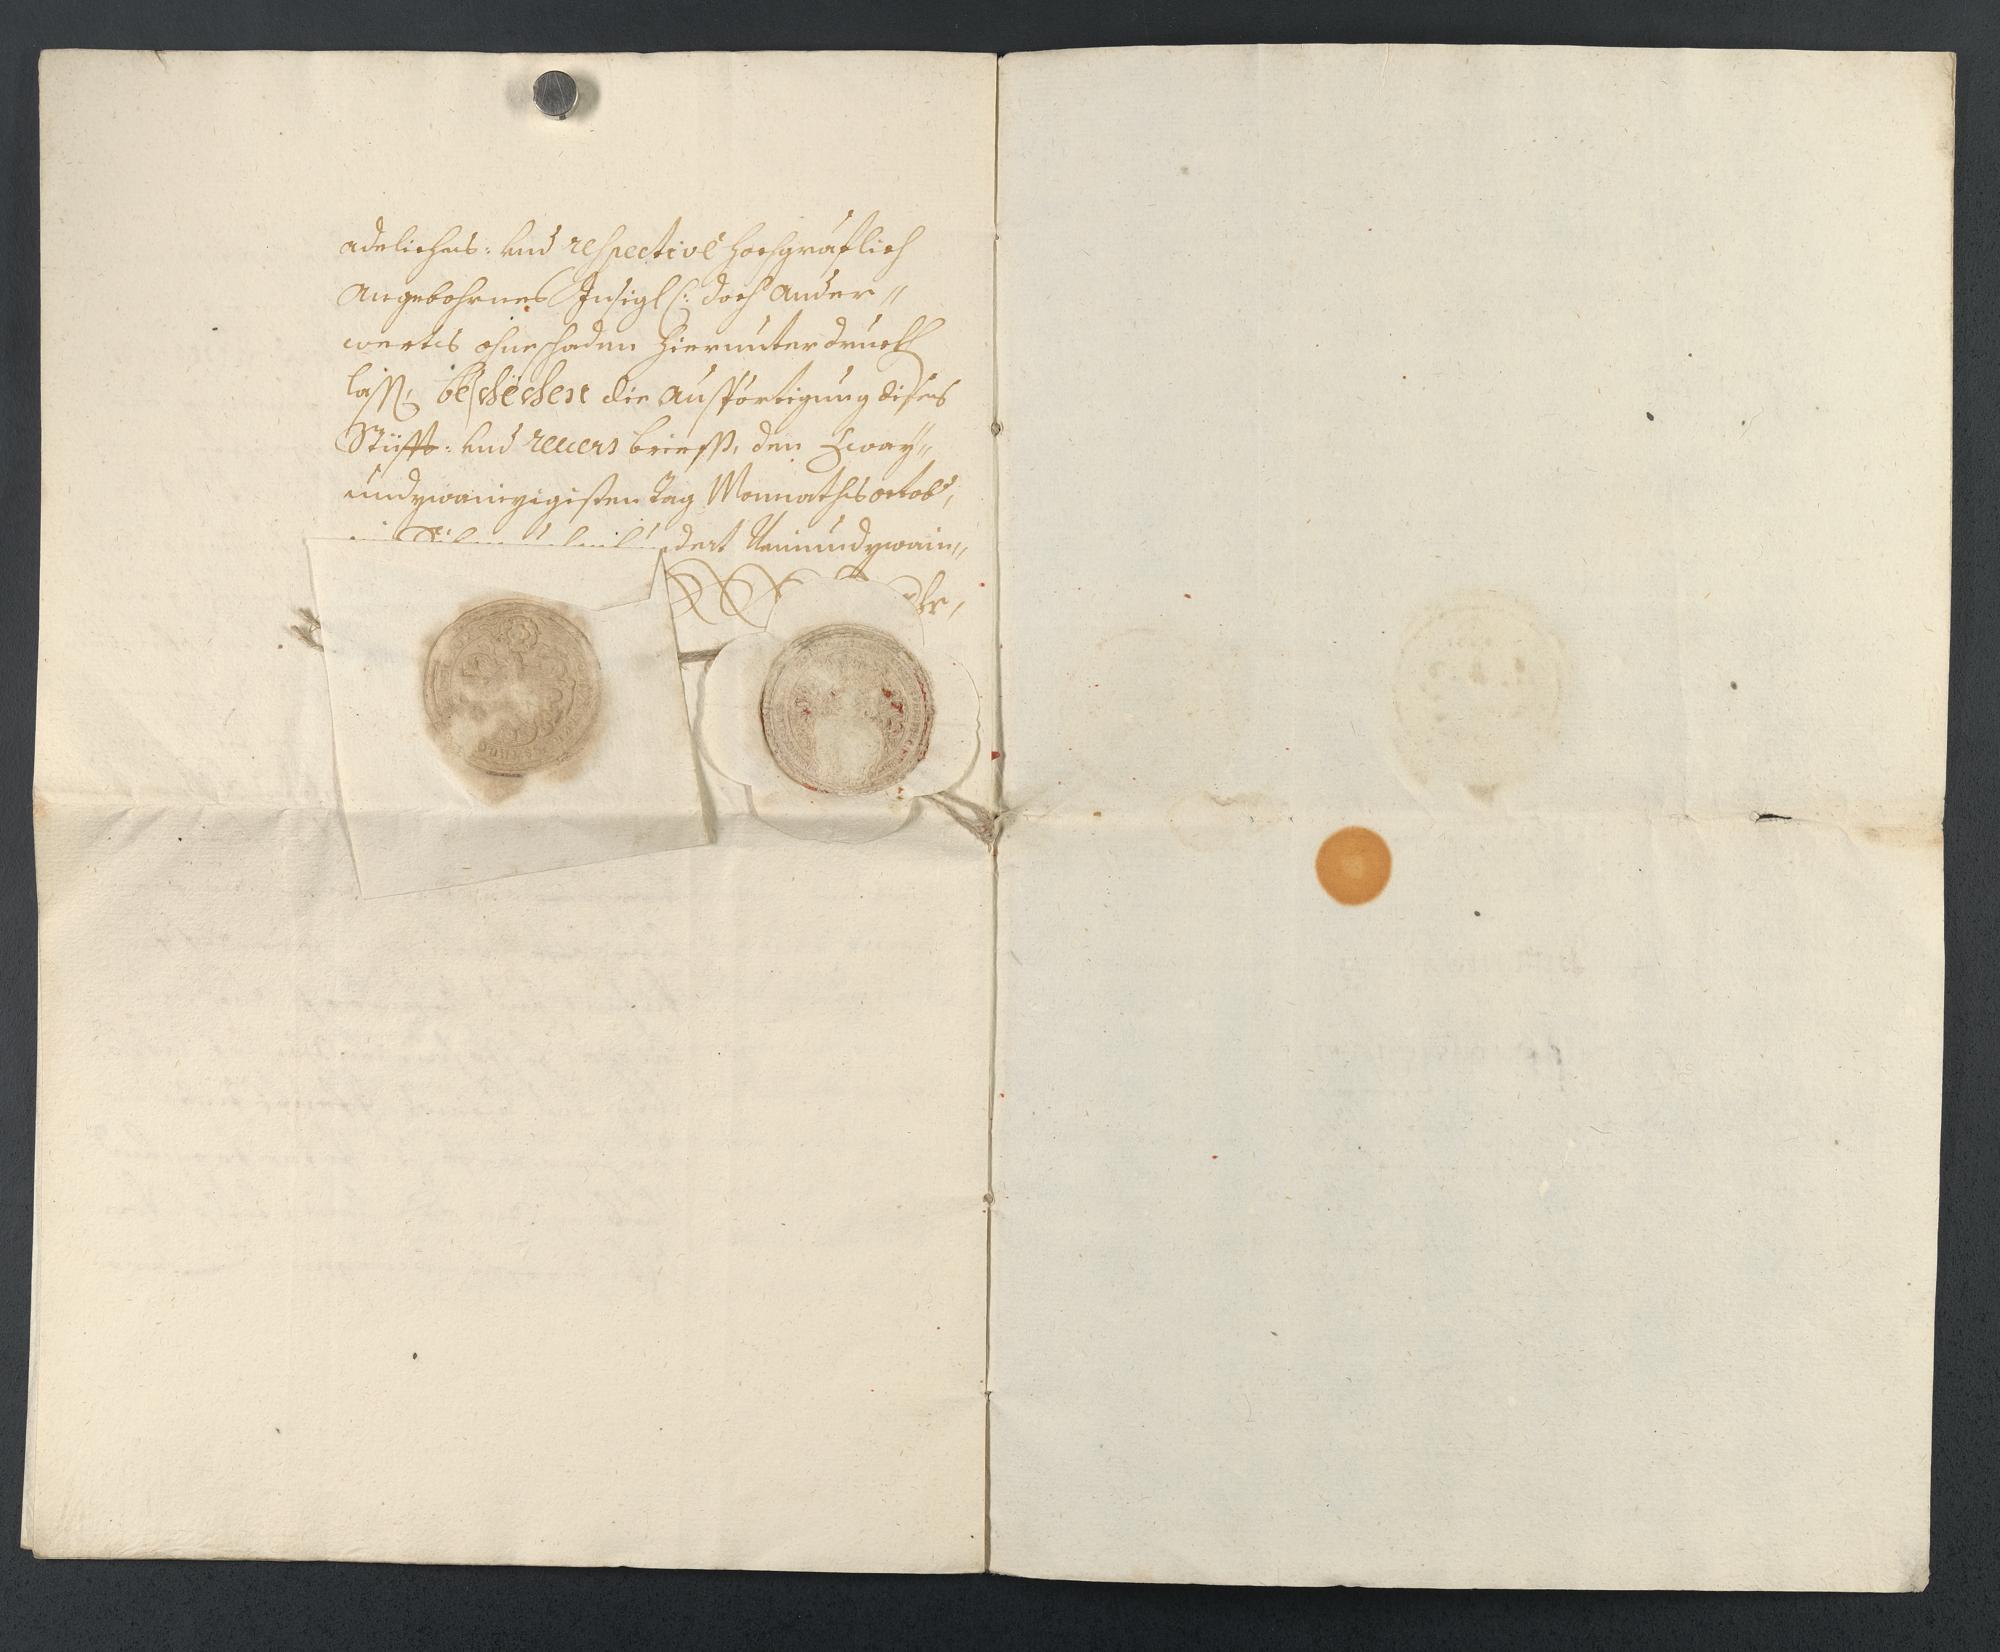 adeliches: und respectivè hochgräflich
Angebohrnes Insigl /: doch ander〃
werts ohne schaden hierunter druckh
lass, beschechen die Ausförtigung dises
Stüfft: und reuers brieff, den Zway〃
undzwainzigisten Tag Monnaths octob:
dert Neünundzwain〃